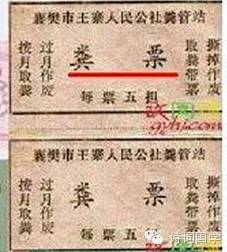 襄樊市王寨人民公社糞管站
撕掉作废
取糞带票
糞票
过月作废
按月取糞
每票五担
襄樊市王寨人民公社糞管站
撕掉作废
取糞带票
糞票
过月作废
按月取糞
每票五担
诗词国学